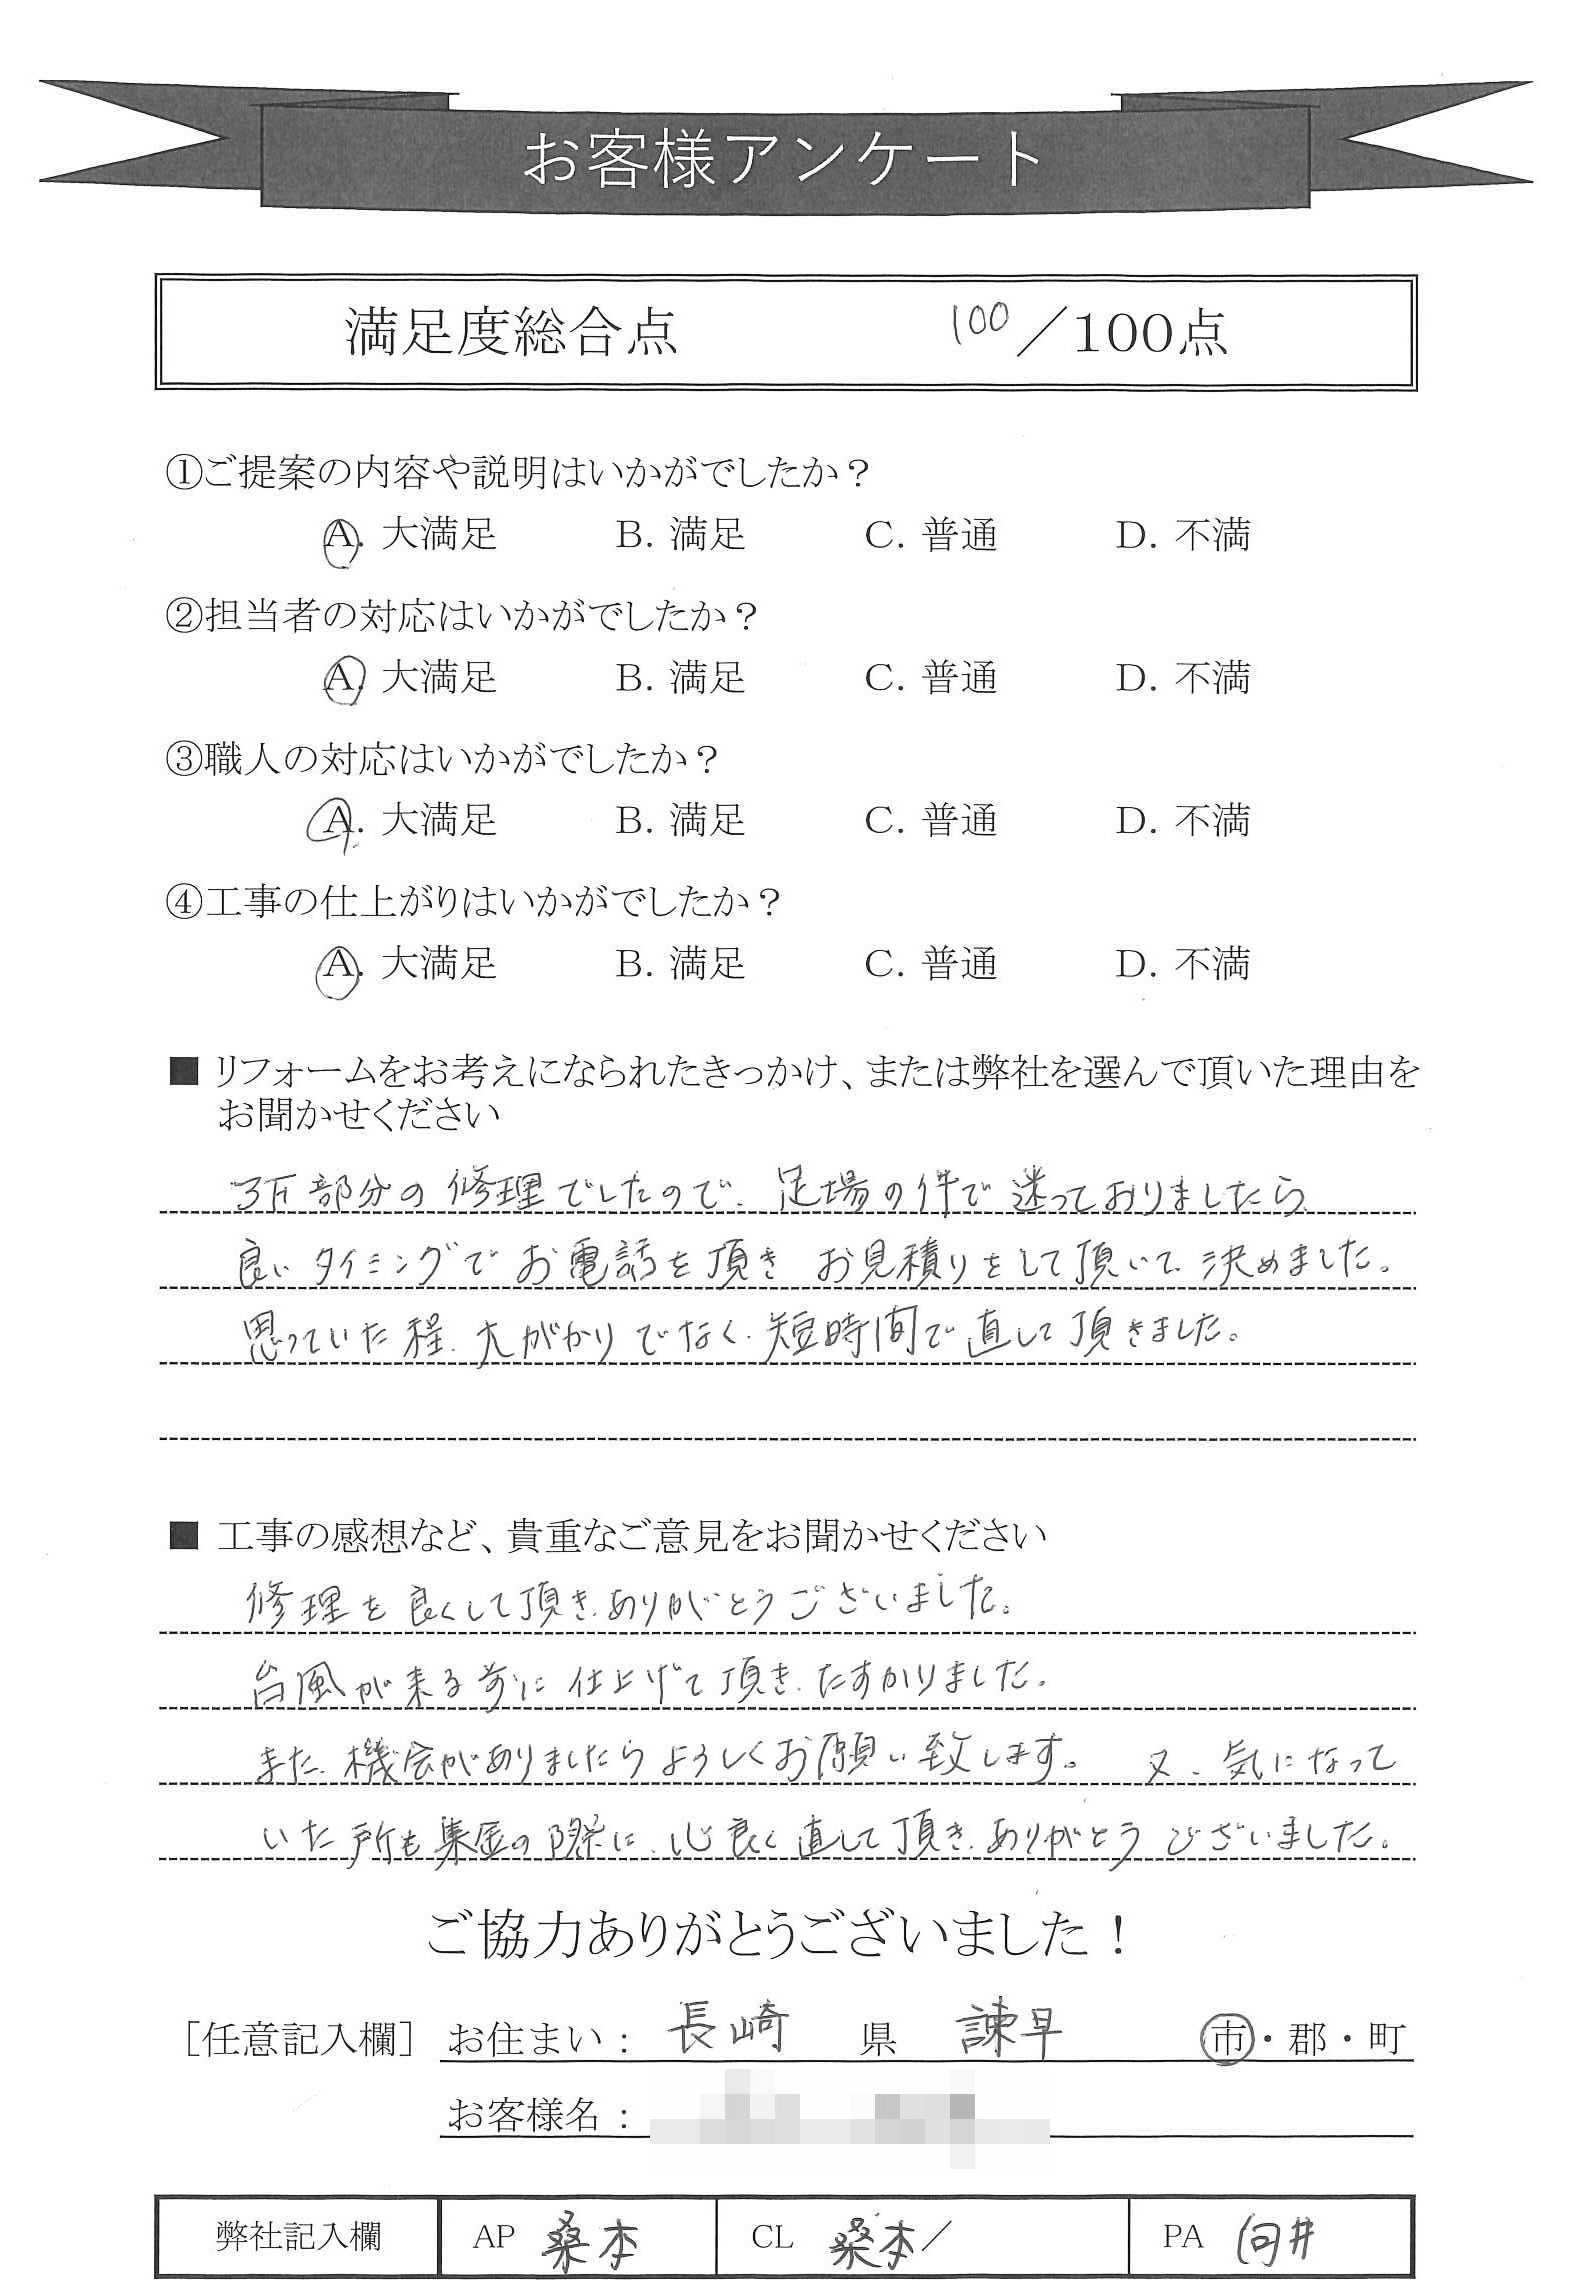 お客様アンケート
満足度総合点 100／100点
①ご提案の内容や説明はいかがでしたか？
A. 大満足 B. 満足 C. 普通 D. 不満
②担当者の対応はいかがでしたか？
A. 大満足 B. 満足 C. 普通 D. 不満
③職人の対応はいかがでしたか？
A. 大満足 B. 満足 C. 普通 D. 不満
④工事の仕上がりはいかがでしたか？
A. 大満足 B. 満足 C. 普通 D. 不満
■ リフォームをお考えになられたきっかけ、または弊社を選んで頂いた理由を
お聞かせください
部分の修理でしたので、足場の件で迷っておりましたら、
良いタイミングでお電話を頂き お見積りをして頂いて、決めました。
思っていた程、大がかりでなく、短時間で直して頂きました。
■ 工事の感想など、貴重なご意見をお聞かせください
修理を良くして頂き、ありがとうございました。
台風が来る前に仕上げて頂き、たすかりました。
また、機会がありましたらよろしくお願い致します。 又、気になって
いた所も集金の際に、心良く直して頂き、ありがとうございました。
ご協力ありがとうございました！
［任意記入欄］ お住まい： 長崎 県 諫早 市・郡・町
お客様名：
弊社記入欄 AP 桑本 CL 桑本／ PA 向井